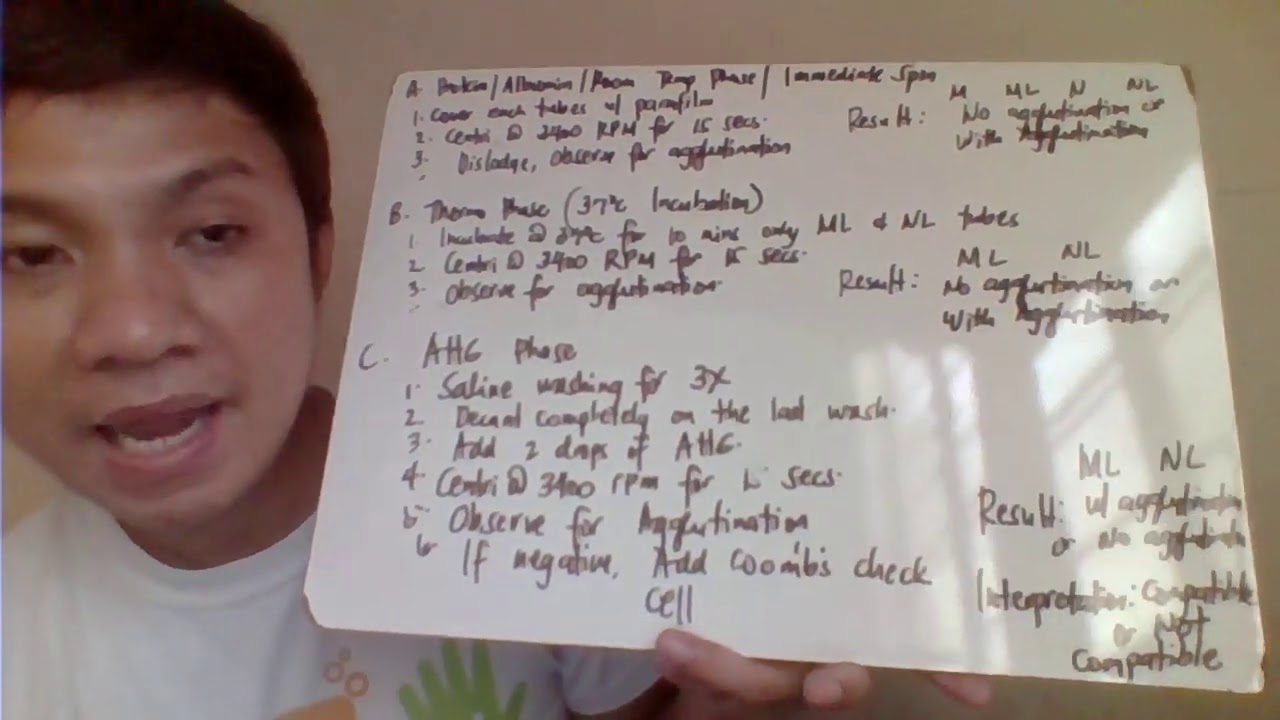 A. Protein/Albumin/Room Temp Phase/ Immediate Spin
1. Cover each tubes w/ parafilm
2. Centri @ 3400 RPM for 15 secs.
3. Dislodge, observe for agglutination
M ML N NL
Result: No agglutination or
With Agglutination
B. Thermo Phase (37°C Incubation)
1. Incubate @ 37°C for 10 mins only ML & NL tubes
2. Centri @ 3400 RPM for 15 secs.
3. Observe for agglutination
ML NL
Result: No agglutination or
With Agglutination
C. AHG Phase
1. Saline washing for 3X
2. Decant completely on the last wash.
3. Add 2 drops of AHG.
4. Centri @ 3400 rpm for secs.
5. Observe for Agglutination
6. If negative, Add Coomb's check
cell
ML NL
Result: w/ agglutination
or No agglutination
Interpretation: Compatible
or Not
compatible